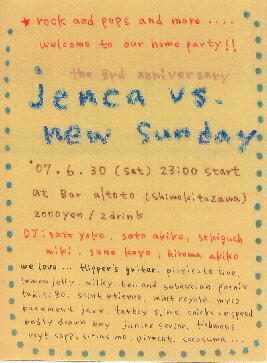 ★ rock and pops and more ....
welcome to our home party!!
the 3rd anniversary
jenca vs.
new Sunday
'07.6.30 (sat) 23:00 start
at Bar altoto (Shimokitazawa)
2000yen / 2drink
DJ: sato yoko, sato akiko, sekiguch
miki, sano kayo, hiroma akiko
we love... flipper's guitar. pizzicato five.
lemon jelly. milky. belle and sebastian. patric
80. saint etienne. mint royale.
basement jaxx. fatboy slim. chicken speed
badly drawn boy. junior senior.
cocosuma...